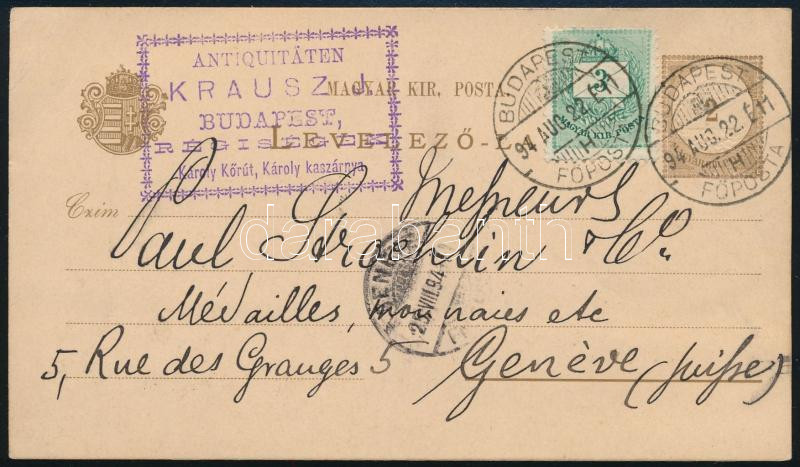 ANTIQUITÄTEN
KRAUSZ J.
BUDAPEST,
RÉGISÉGEK
Károly Körút, Károly kaszárnya
MAGYAR KIR. POSTA.
LEVELEZŐ-L
BUDAPEST
94 AUG. 22
FŐPOSTA
3
MAGYAR KIR. POSTA
BUDAPEST
94 AUG. 22 E 11
FŐPOSTA
2
Czim
Messieurs
Paul Stroehlin & Co.
Médailles, monnaies etc
5, Rue des Granges 5
Genève (Suisse)
VIII.94
darabanth